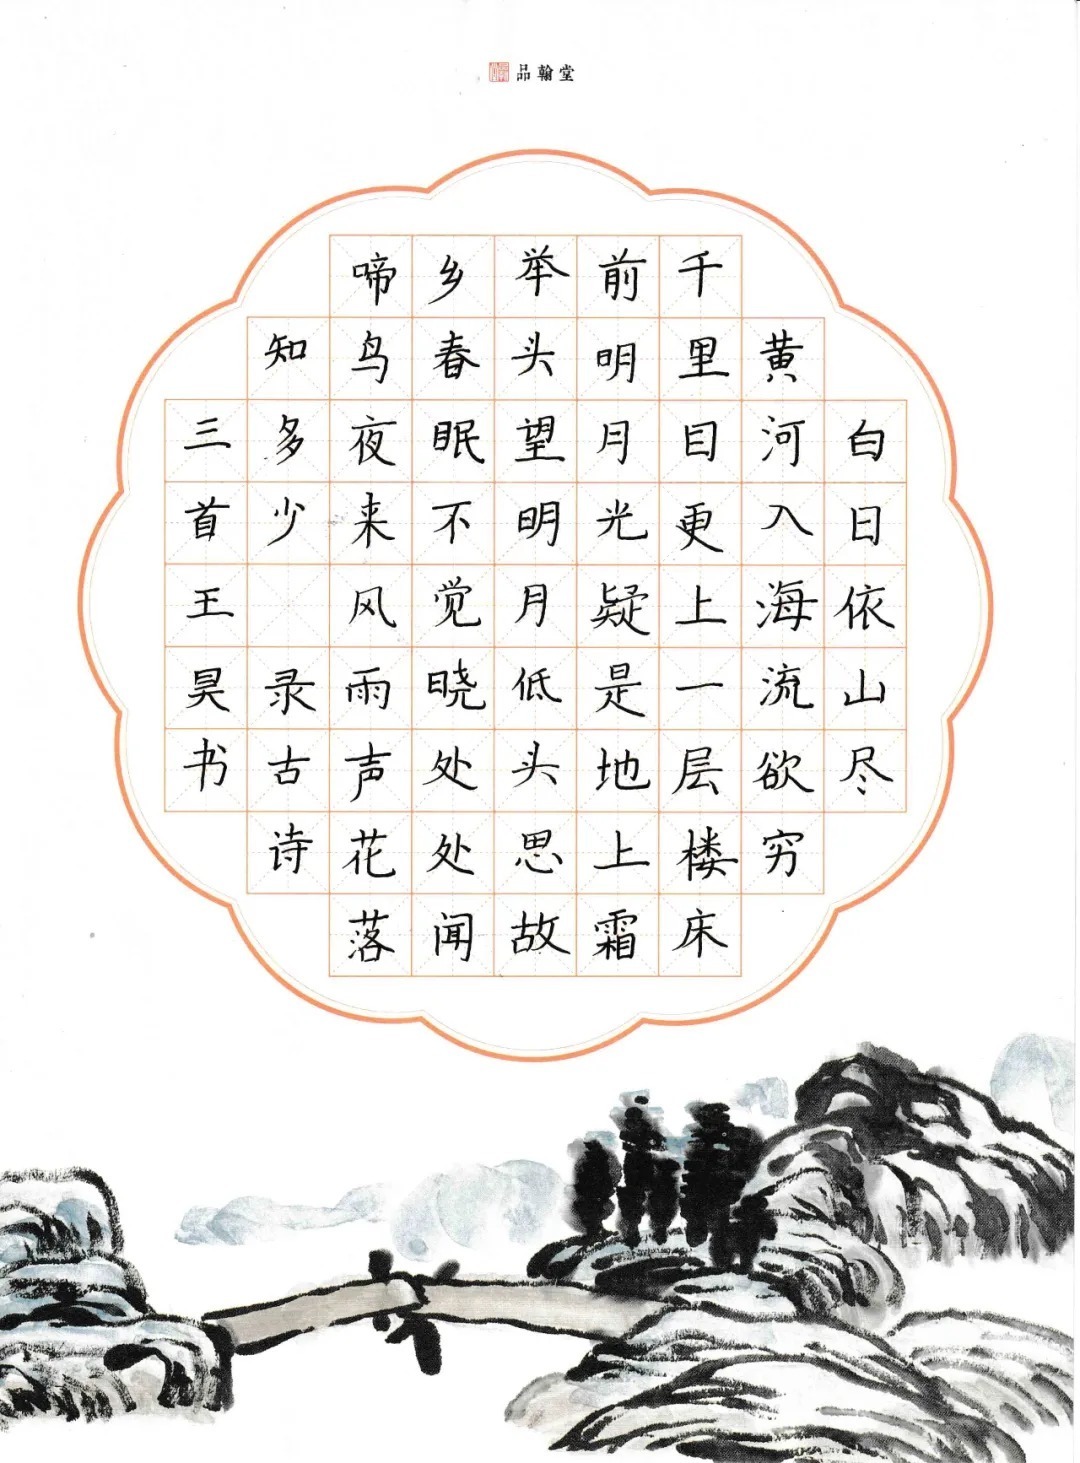 品翰堂
白日依山尽
黄河入海流欲穷
千里目更上一层楼床
前明月光疑是地上霜
举头望明月低头思故
乡春眠不觉晓处处闻
啼鸟夜来风雨声花落
知多少 录古诗
三首王昊书